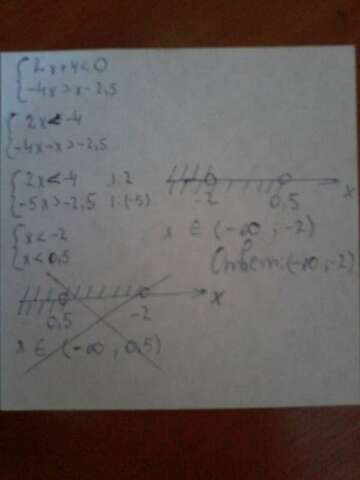 2x+4<0
-4x>x-2,5
2x<-4
-4x-x>-2,5
2x<-4 |:2
-5x>-2,5 |:(-5)
x<-2
x<0,5
-2 0,5 x
x ∈ (-∞, -2)
Ответ: (-∞, -2)
0,5 -2 x
x ∈ (-∞, 0,5)